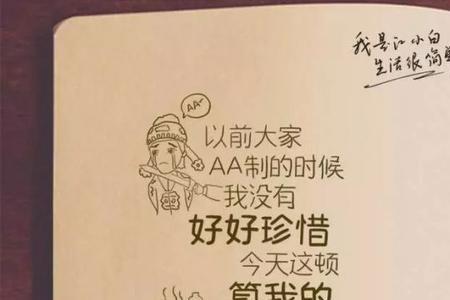 我是江小白
生活很简单
AA
以前大家
AA制的时候
我没有
好好珍惜
今天这顿
算我的